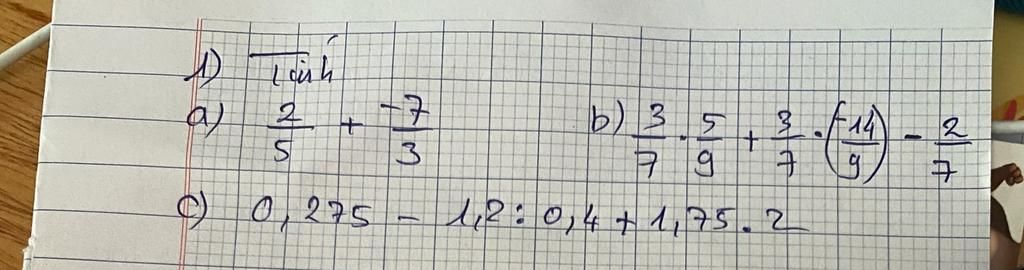 1) Tính
a) 2/5 + -7/3 b) 3/7 . 5/9 + 3/7 . (-14/9) - 2/7
c) 0,275 - 1,2 : 0,4 + 1,75 . 2